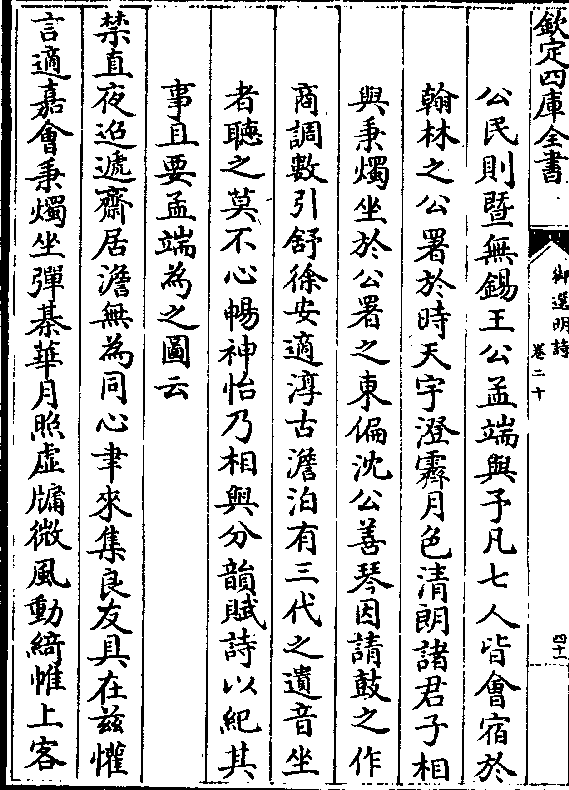 欽定四庫全書
御選明詩
卷二十
四十
公民則暨無錫王公孟端與予凡七人皆會宿於
翰林之公署於時天宇澄霽月色清朗諸君子相
與秉燭坐於公署之東偏沈公善琴因請鼓之作
商調數引舒徐安適淳古澹泊有三代之遺音坐
者聽之莫不心暢神怡乃相與分韻賦詩以紀其
事且要孟端為之圖云
禁直夜迢遞齋居澹無為同心聿來集良友具在兹懽
言適嘉會秉燭坐彈棊華月照虛牖微風動綺帷上客